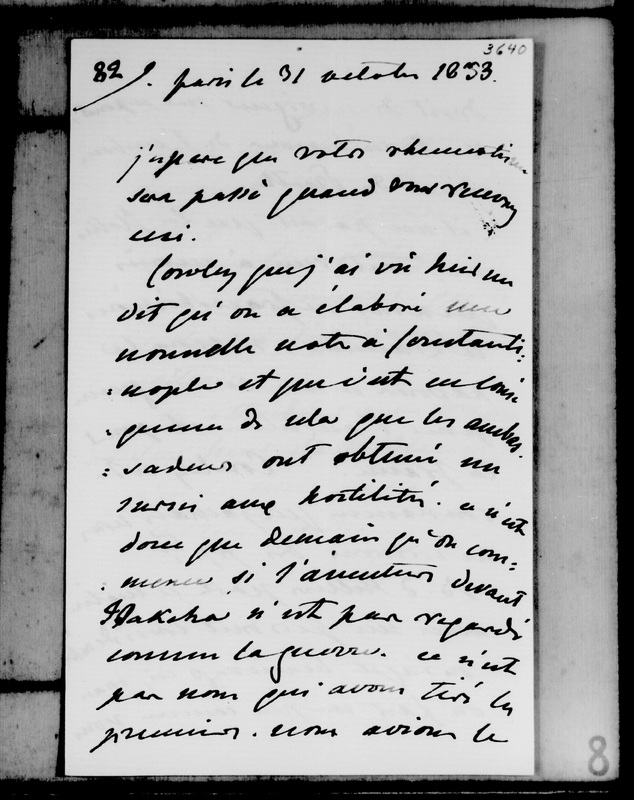 3640
82 9. paris le 31 octobre 1853.
j'espere que votre rhumatisme
sera passé quand vous reviendrez
ici.
Cowley que j'ai vu hier me
dit qu'on a élaboré une
nouvelle note à Constanti:
:nople et que c'est en consé
:quence de cela que les ambas.
:sadeurs ont obtenu un
sursis aux hostilités. ce n'est
donc que demain qu'on com:
:mence si l'aventure devant
Isakcha n'est pas regardé
comme la guerre. ce n'est
pas nous qui avons tiré les
premiers. nous avions le
8